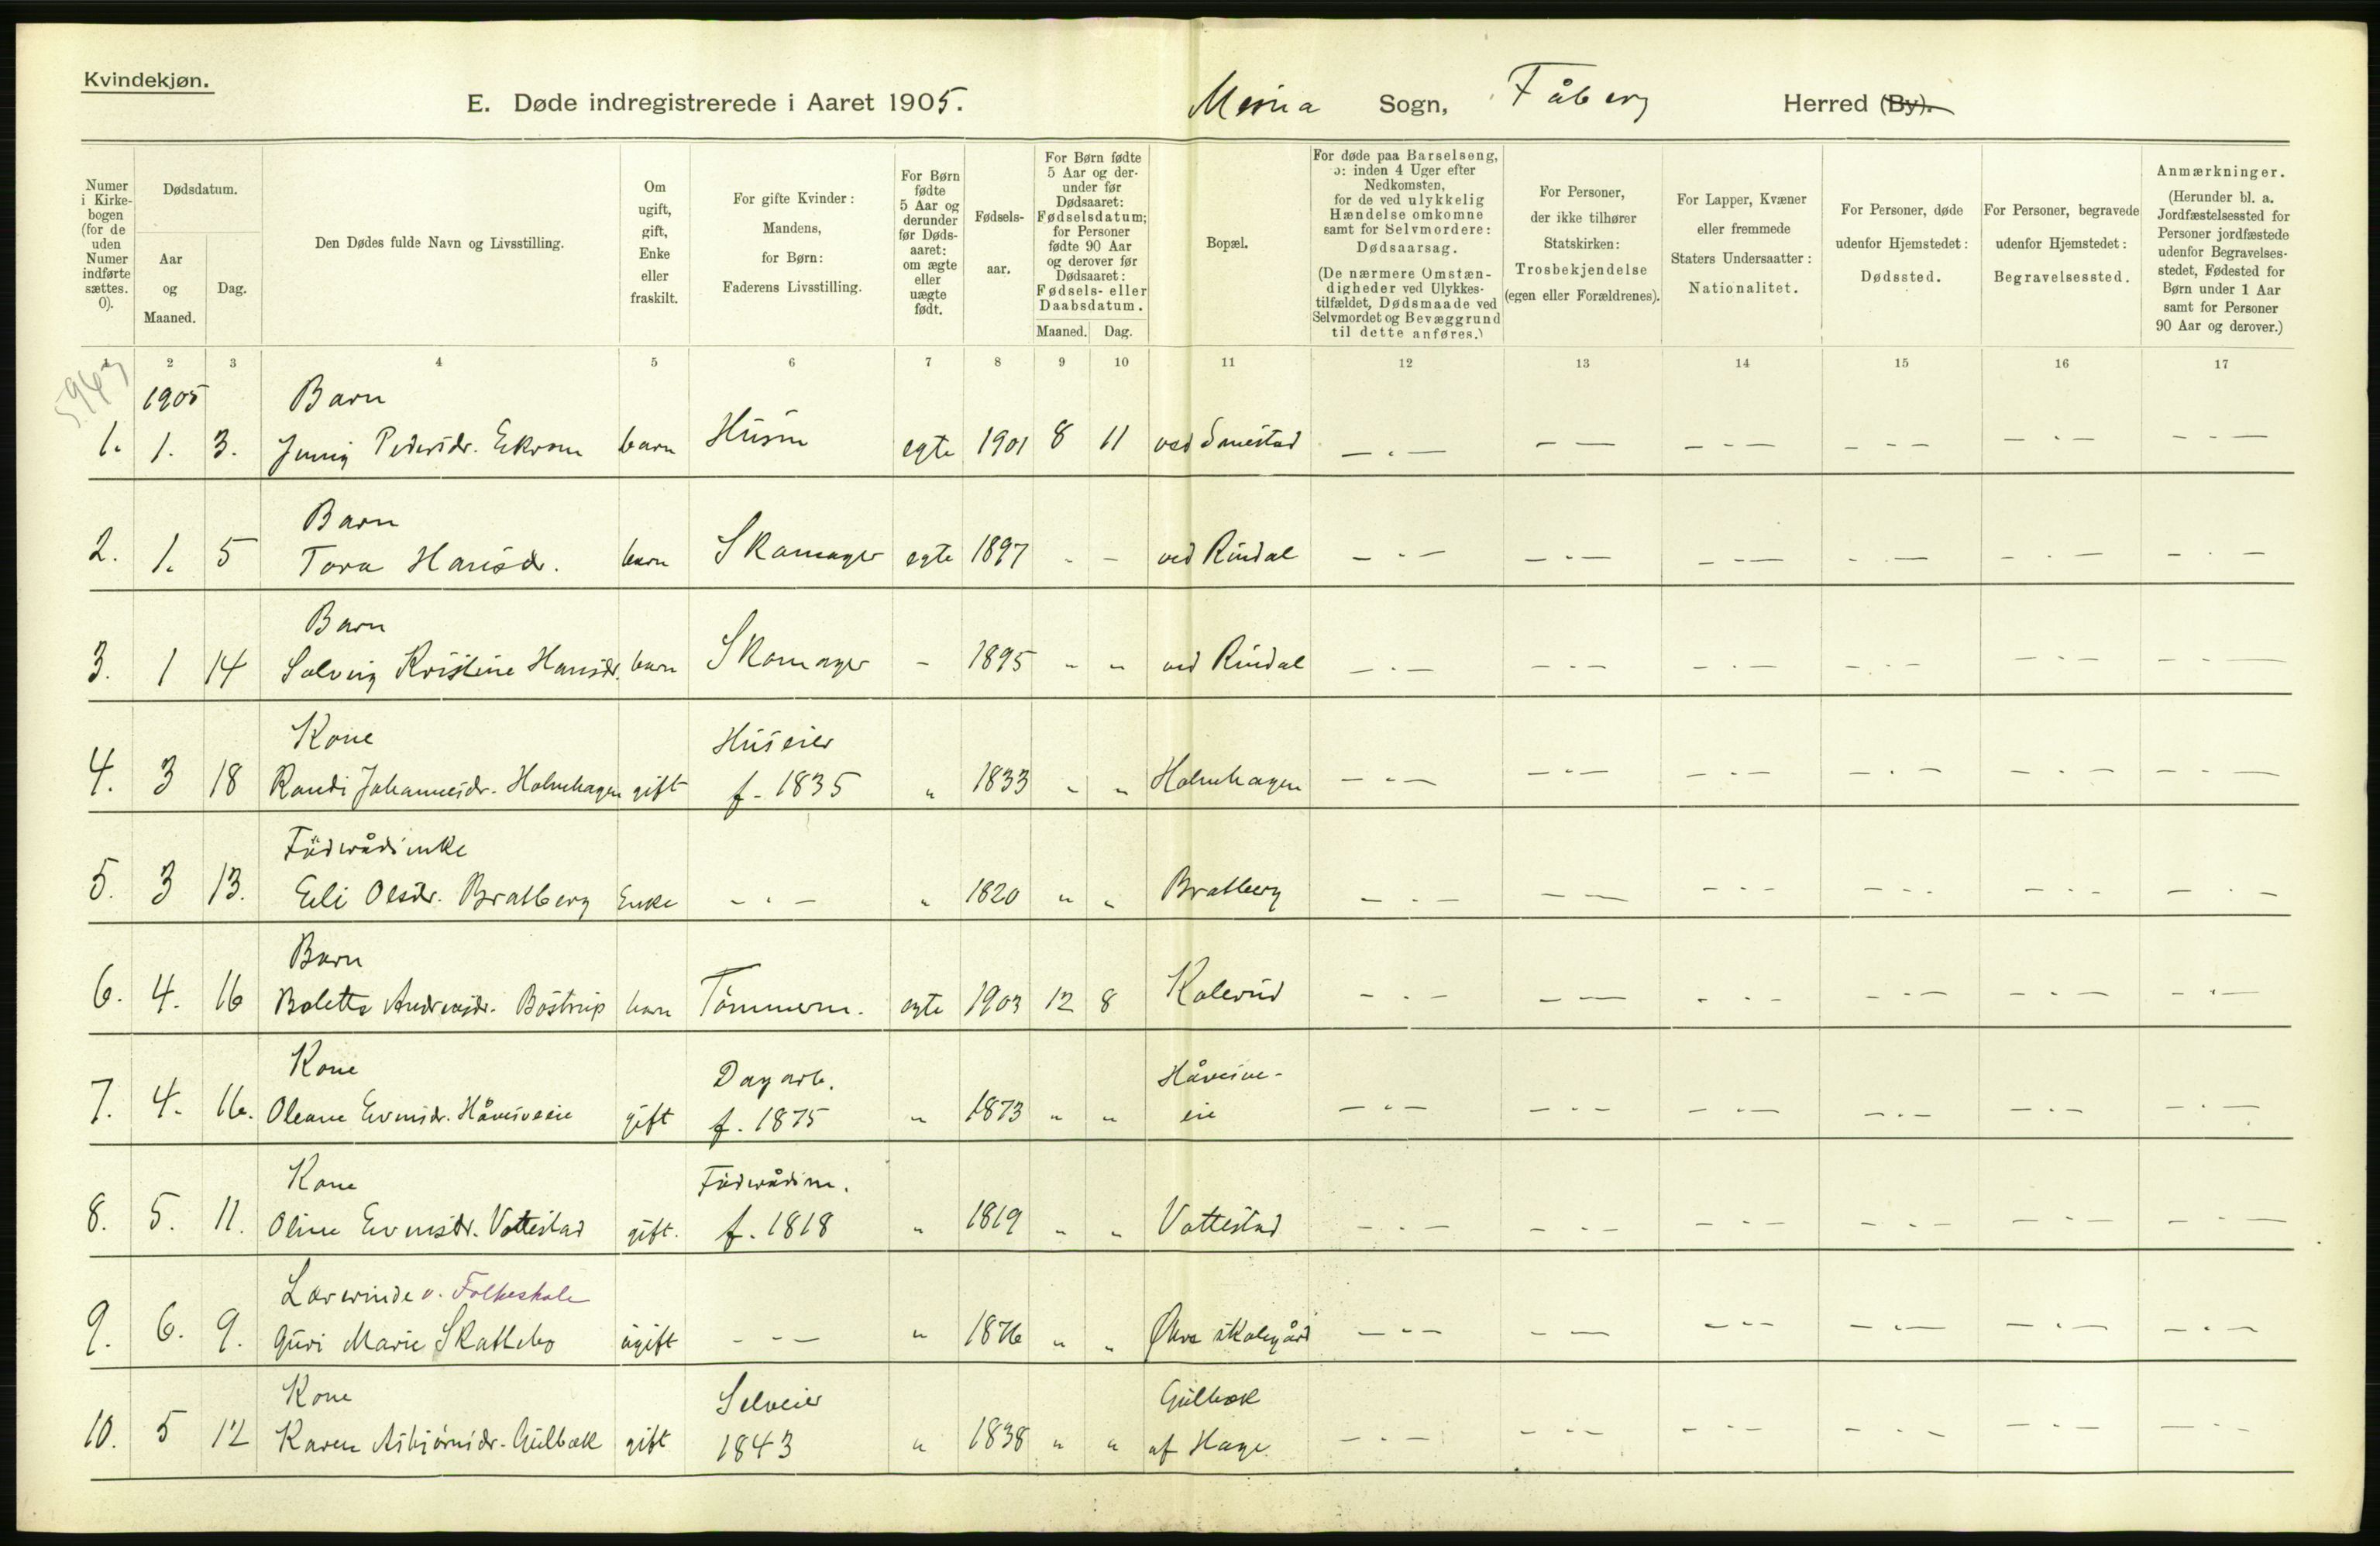 Kvindekjøn.
E. Døde indregistrerede i Aaret 1905.
Mesna Sogn, Fåberg Herred (By).
Numer i Kirkebogen (for de uden Numer indførte sættes. 0).
Dødsdatum.
Aar og Maaned.
Dag.
Den Dødes fulde Navn og Livsstilling.
Om ugift, gift, Enke eller fraskilt.
For gifte Kvinder: Mandens, for Børn: Faderens Livsstilling.
For Børn fødte 5 Aar og derunder før Dødsaaret: om ægte eller uægte født.
Fødselsaar.
For Børn fødte 5 Aar og derunder før Dødsaaret: Fødselsdatum; for Personer fødte 90 Aar og derover før Dødsaaret: Fødsels- eller Daabsdatum.
Maaned. Dag.
Bopæl.
For døde paa Barselseng, ɔ: inden 4 Uger efter Nedkomsten, for de ved ulykkelig Hændelse omkomne samt for Selvmordere: Dødsaarsag.
(De nærmere Omstændigheder ved Ulykkestilfældet, Dødsmaade ved Selvmordet og Bevæggrund til dette anføres.)
For Personer, der ikke tilhører Statskirken: Trosbekjendelse (egen eller Forældrenes).
For Lapper, Kvæner eller fremmede Staters Undersaatter: Nationalitet.
For Personer, døde udenfor Hjemstedet: Dødssted.
For Personer, begravede udenfor Hjemstedet: Begravelsessted.
Anmærkninger.
(Herunder bl. a. Jordfæstelsessted for Personer jordfæstede udenfor Begravelsesstedet, Fødested for Børn under 1 Aar samt for Personer 90 Aar og derover.)
1 2 3 4 5 6 7 8 9 10 11 12 13 14 15 16 17
1905 Barn
1. 1. 3. Jenny Pedersdr. Ekrom barn Husm egte 1901 8 11 ved Smestad
Barn
2. 1. 5 Tora Hansdr. barn Skomager egte 1897 - - ved Rindal
Barn
3. 1 14 Solveig Kristine Hansdr. barn Skomager - 1895 " " ved Rindal
Kone Huseier
4. 3 18 Randi Johannesdr. Holmhagen gift f. 1835 " 1833 " " Holmhagen
Føderådsenke
5. 3 13. Eli Olsdr. Bratberg Enke - - - " 1820 " " Bratberg
Barn
6. 4. 16 Bolette Andreasdr. Båstrup barn Tømmerm. egte 1903 12 8 Kolerud
Kone Dagarb. Håveive-
7. 4. 16. Oleane Evensdr. gift f. 1875 " 1873 " " eie
Kone Føderådsm.
8. 5. 11. Oline Evensdr. Vottestad gift. f. 1818 " 1819 " " Vottestad
Lærerinde v. Folkeskole
9. 6. 9. Guri Marie Skattebo ugift - - - " 1876 " " skolegård
Kone Selveier Gulbæk
10. 5 12 Karen Asbjørnsdr. Gulbæk gift 1843 " 1838 " " af Hage.